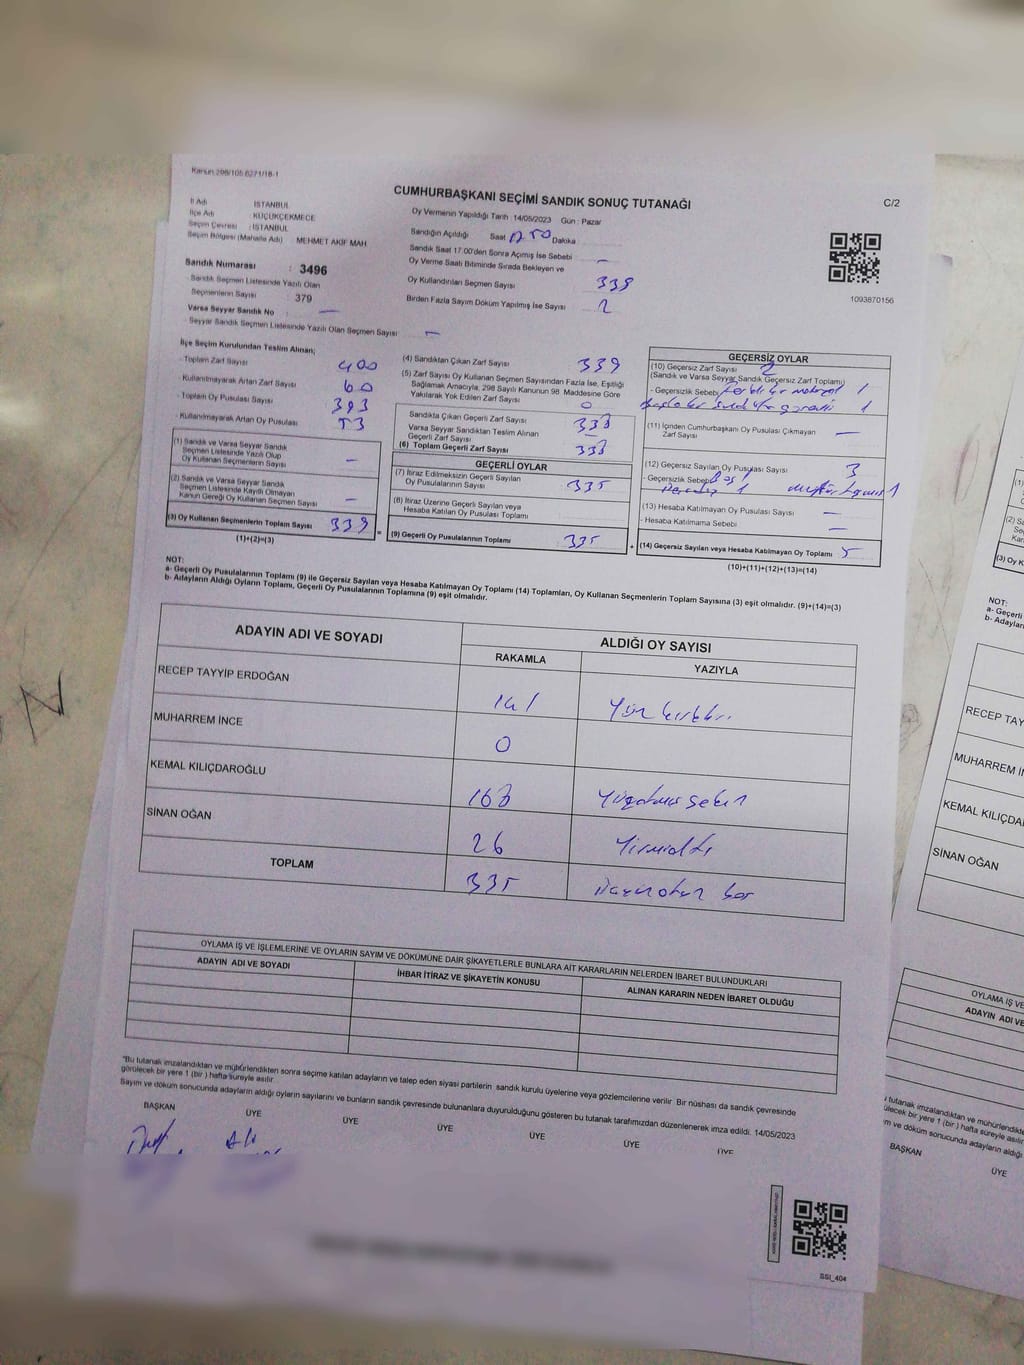 Kanun 298/105.6271/18-1
CUMHURBAŞKANI SEÇİMİ SANDIK SONUÇ TUTANAĞI
C/2
İl Adı : İSTANBUL
İlçe Adı : KÜÇÜKÇEKMECE
Seçim Çevresi : İSTANBUL
Seçim Bölgesi (Mahalle Adı) : MEHMET AKİF MAH.
Sandık Numarası : 3496
Sandık Seçmen Listesinde Yazılı Olan
Seçmenlerin Sayısı : 379
Varsa Seyyar Sandık No : —
Seyyar Sandık Seçmen Listesinde Yazılı Olan Seçmen Sayısı : —
Oy Vermenin Yapıldığı Tarih : 14/05/2023 Gün : Pazar
Sandığın Açıldığı Saat Dakika
Sandık Saat 17:00'den Sonra Açılmış İse Sebebi
Oy Verme Saati Bitiminde Sırada Bekleyen ve —
Oy Kullandırılan Seçmen Sayısı
Birden Fazla Sayım Döküm Yapılmış İse Sayısı 2
1093870156
İlçe Seçim Kurulundan Teslim Alınan;
- Toplam Zarf Sayısı 400
- Kullanılmayarak Artan Zarf Sayısı 60
- Toplam Oy Pusulası Sayısı 393
- Kullanılmayarak Artan Oy Pusulası 53
(1) Sandık ve Varsa Seyyar Sandık
Seçmen Listesinde Yazılı Olup
Oy Kullanan Seçmenlerin Sayısı —
(2) Sandık ve Varsa Seyyar Sandık
Seçmen Listesinde Kayıtlı Olmayan
Kanun Gereği Oy Kullanan Seçmen Sayısı —
(3) Oy Kullanan Seçmenlerin Toplam Sayısı 339
(1)+(2)=(3)
(4) Sandıktan Çıkan Zarf Sayısı 339
(5) Zarf Sayısı Oy Kullanan Seçmen Sayısından Fazla İse, Eşitliği
Sağlamak Amacıyla, 298 Sayılı Kanunun 98. Maddesine Göre
Yakılarak Yok Edilen Zarf Sayısı 0
Sandıkta Çıkan Geçerli Zarf Sayısı 338
Varsa Seyyar Sandıktan Teslim Alınan
Geçerli Zarf Sayısı —
(6) Toplam Geçerli Zarf Sayısı 338
GEÇERLİ OYLAR
(7) İtiraz Edilmeksizin Geçerli Sayılan
Oy Pusulalarının Sayısı 335
(8) İtiraz Üzerine Geçerli Sayılan veya
Hesaba Katılan Oy Pusulası Toplamı
(9) Geçerli Oy Pusulalarının Toplamı 335
GEÇERSİZ OYLAR
(10) Geçersiz Zarf Sayısı 2
(Sandık ve Varsa Seyyar Sandık Geçersiz Zarf Toplamı)
- Geçersizlik Sebebi 1
1
(11) İçinden Cumhurbaşkanı Oy Pusulası Çıkmayan
Zarf Sayısı —
(12) Geçersiz Sayılan Oy Pusulası Sayısı 3
- Geçersizlik Sebebi
(13) Hesaba Katılmayan Oy Pusulası Sayısı —
- Hesaba Katılmama Sebebi —
(14) Geçersiz Sayılan veya Hesaba Katılmayan Oy Toplamı 5
(10)+(11)+(12)+(13)=(14)
NOT:
a- Geçerli Oy Pusulalarının Toplamı (9) ile Geçersiz Sayılan veya Hesaba Katılmayan Oy Toplamı (14) Toplamları, Oy Kullanan Seçmenlerin Toplam Sayısına (3) eşit olmalıdır. (9)+(14)=(3)
b- Adayların Aldığı Oyların Toplamı, Geçerli Oy Pusulalarının Toplamına (9) eşit olmalıdır.
ADAYIN ADI VE SOYADI ALDIĞI OY SAYISI
RAKAMLA YAZIYLA
RECEP TAYYİP ERDOĞAN 141 Yüz kırkbir
MUHARREM İNCE 0
KEMAL KILIÇDAROĞLU 168 Yüzatmış sekiz
SİNAN OĞAN 26 Yirmialtı
TOPLAM 335 Üçyüzotuz beş
OYLAMA İŞ VE İŞLEMLERİNE VE OYLARIN SAYIM VE DÖKÜMÜNE DAİR ŞİKAYETLERLE BUNLARA AİT KARARLARIN NELERDEN İBARET BULUNDUKLARI
ADAYIN ADI VE SOYADI İHBAR İTİRAZ VE ŞİKAYETİN KONUSU ALINAN KARARIN NEDEN İBARET OLDUĞU
"Bu tutanak imzalandıktan ve mühürlendikten sonra seçime katılan adayların ve talep eden siyasi partilerin sandık kurulu üyelerine veya gözlemcilerine verilir. Bir nüshası da sandık çevresinde
görülecek bir yere 1 (bir ) hafta süreyle asılır.
Sayım ve döküm sonucunda adayların aldığı oyların sayılarını ve bunların sandık çevresinde bulunanlara duyurulduğunu gösteren bu tutanak tarafımızdan düzenlenerek imza edildi. 14/05/2023
BAŞKAN ÜYE ÜYE ÜYE ÜYE ÜYE ÜYE
SSI_404
NOT:
a- Geçerli
b- Adayların
RECEP TAY
MUHARREM İN
KEMAL KILIÇDA
SİNAN OĞAN
OYLAMA İŞ VE
ADAYIN ADI VE
BAŞKAN ÜYE